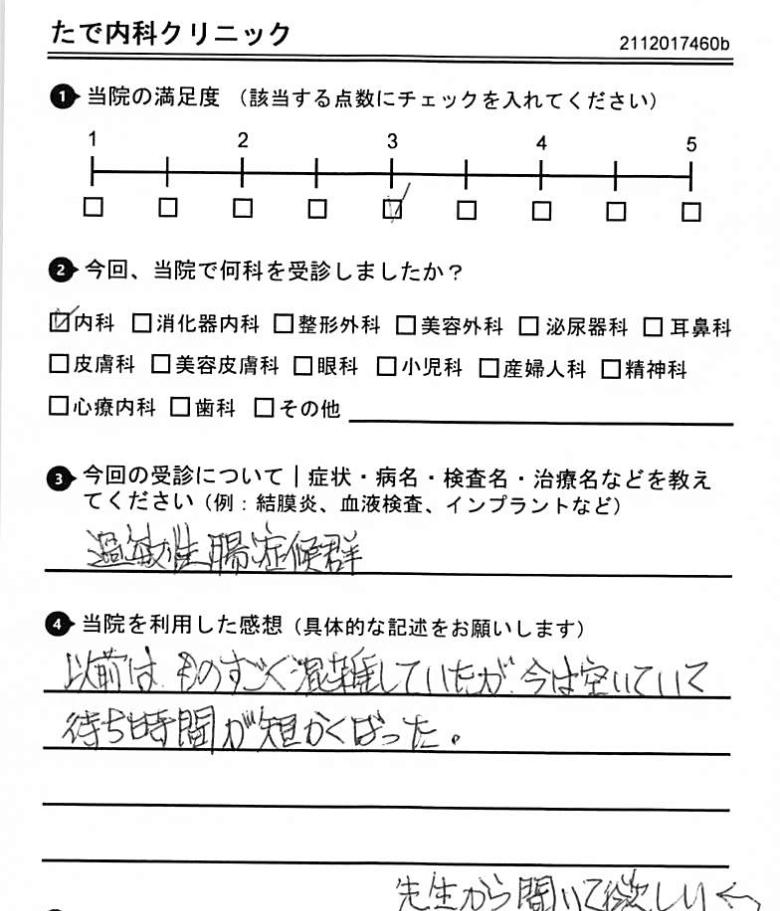 たで内科クリニック
2112017460b
❶ 当院の満足度 （該当する点数にチェックを入れてください）
1 2 3 4 5
❷ 今回、当院で何科を受診しましたか？
☑内科 □消化器内科 □整形外科 □美容外科 □泌尿器科 □耳鼻科
□皮膚科 □美容皮膚科 □眼科 □小児科 □産婦人科 □精神科
□心療内科 □歯科 □その他
❸ 今回の受診について｜症状・病名・検査名・治療名などを教え
てください（例：結膜炎、血液検査、インプラントなど）
過敏性腸症候群
❹ 当院を利用した感想（具体的な記述をお願いします）
以前は、ものすごく混雑していたが、今は空いていて
待ち時間が短かくなった。
先生から聞いて欲しい